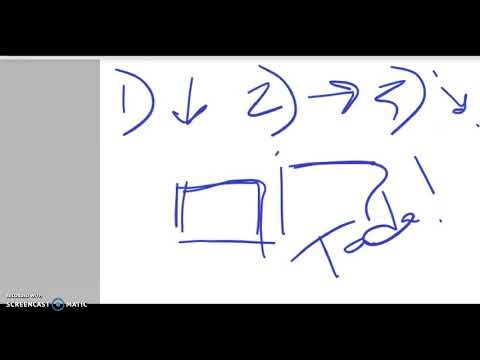 1) ↓ 2) → 3) ↘
Tada!
RECORDED WITH
SCREENCAST MATIC